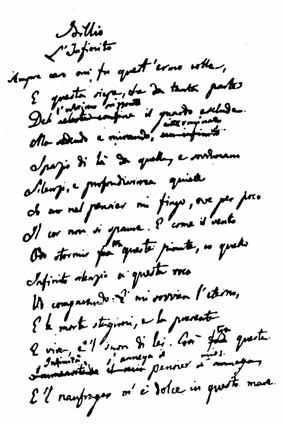 Idillio
L'Infinito
Sempre caro mi fu quest'ermo colle,
E questa siepe, che da tanta parte
l'ultimo orizzonte
Del celeste confine il guardo esclude.
interminato
Ma sedendo e mirando, un infinito
Spazio di là da quella, e sovrumani
Silenzi, e profondissima quiete
Io nel pensier mi fingo, ove per poco
Il cor non si spaura. E come il vento
Odo stormir fra queste piante, io quello
Infinito silenzio a questa voce
Vo comparando: E mi sovvien l'eterno,
E le morte stagioni, e la presente
E viva, e 'l suon di lei. Così fra questa
Infinità s'annega il
Immensità il mio pensier s'annega,
E 'l naufragar m'è dolce in questo mare.